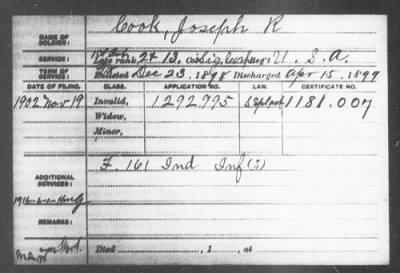 NAME OF SOLDIER: Cook, Joseph R
SERVICE: Late rank, Co. Reg't U. S. A.
TERM OF SERVICE: Enlisted Dec 23, 1898 Discharged Apr 15, 1899
DATE OF FILING. CLASS. APPLICATION NO. LAW. CERTIFICATE NO.
1902 Nov 19 Invalid, 1292995 1181.007
Widow,
Minor,
ADDITIONAL SERVICES: F. 161 Ind Inf (S)
REMARKS:
Died , 1 , at